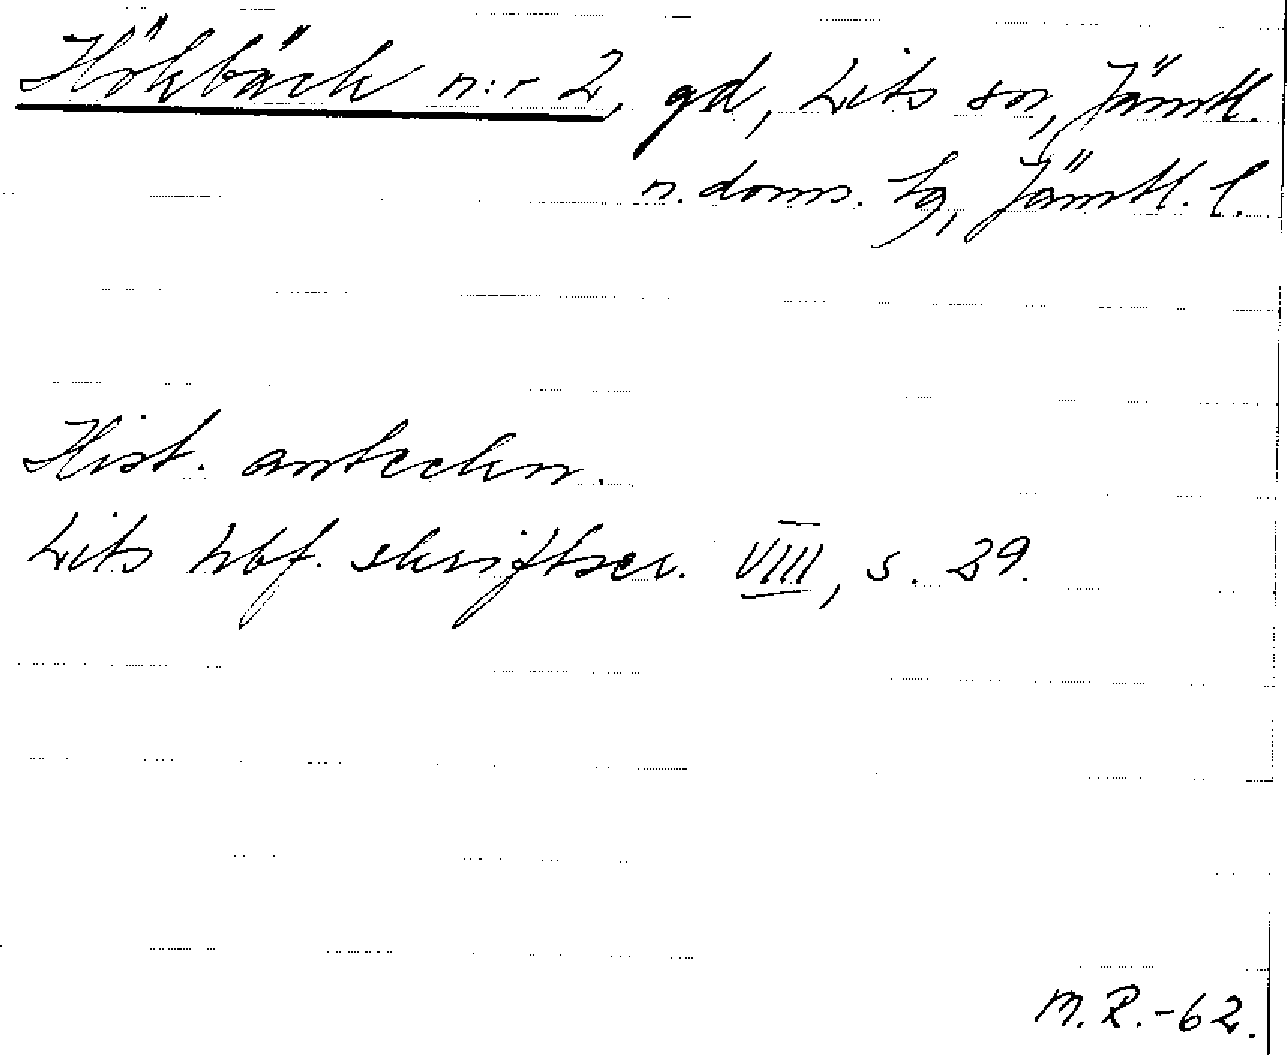 Hökbäck n:r 2, gd, Lits sn, Jämtl.
n. doms. tg, Jämtl. l.
Hist. anteckn.
Lits hbf. skriftser. VIII, s. 29.
M.R.-62.